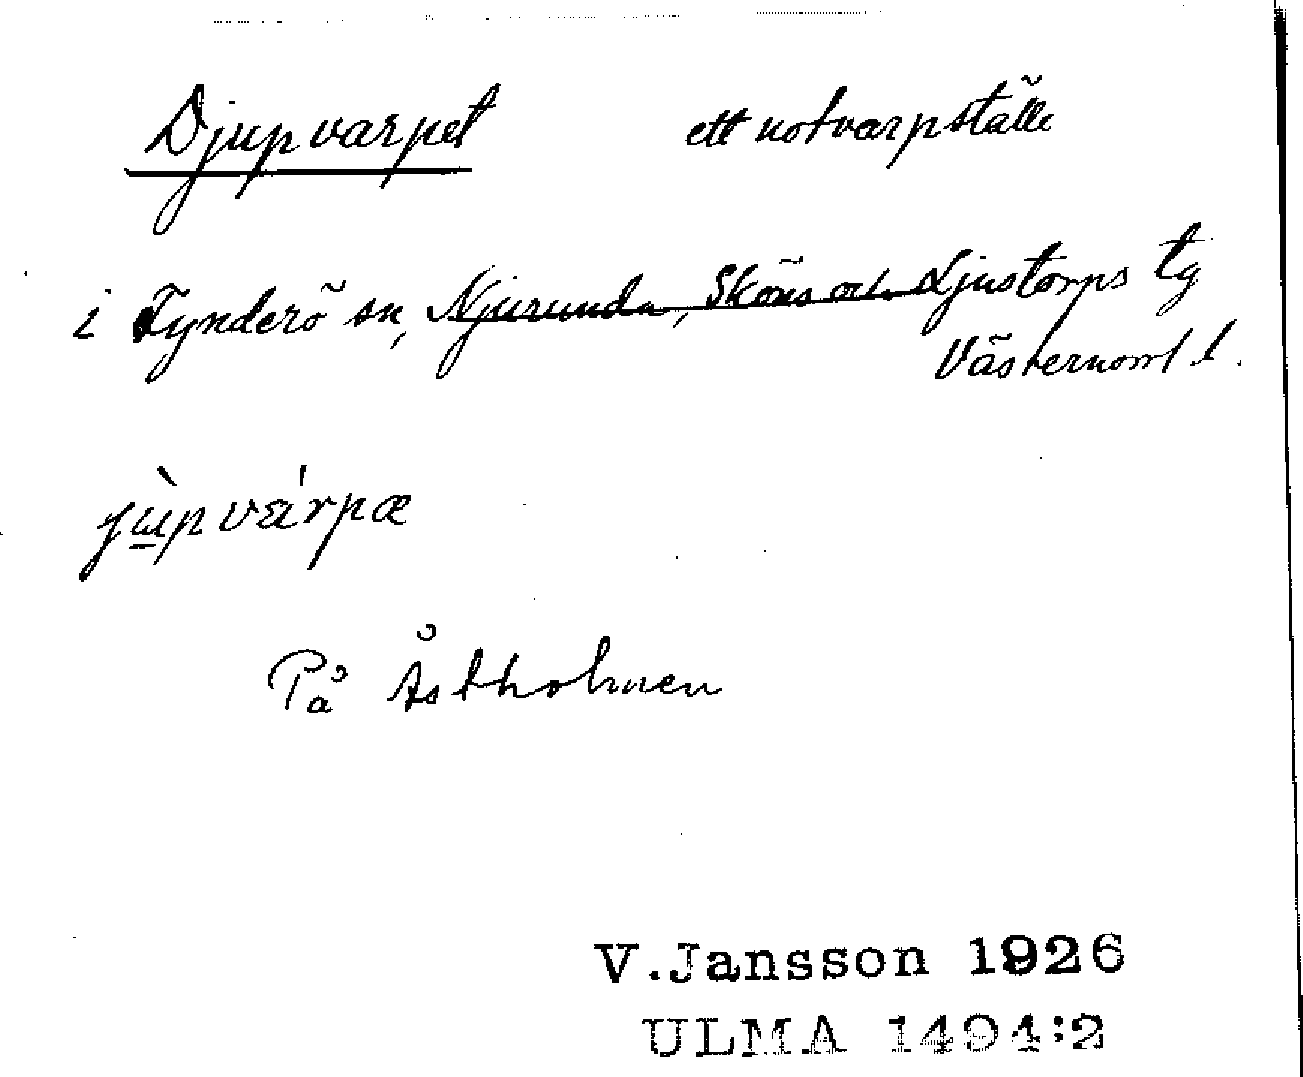 Djupvarpet ett notvarpställe
i Tynderö sn, Njurunda, Sköns och Ljustorps tg
Västernorrl l.
På Åstholmen
V.Jansson 1926
ULMA 1494:2